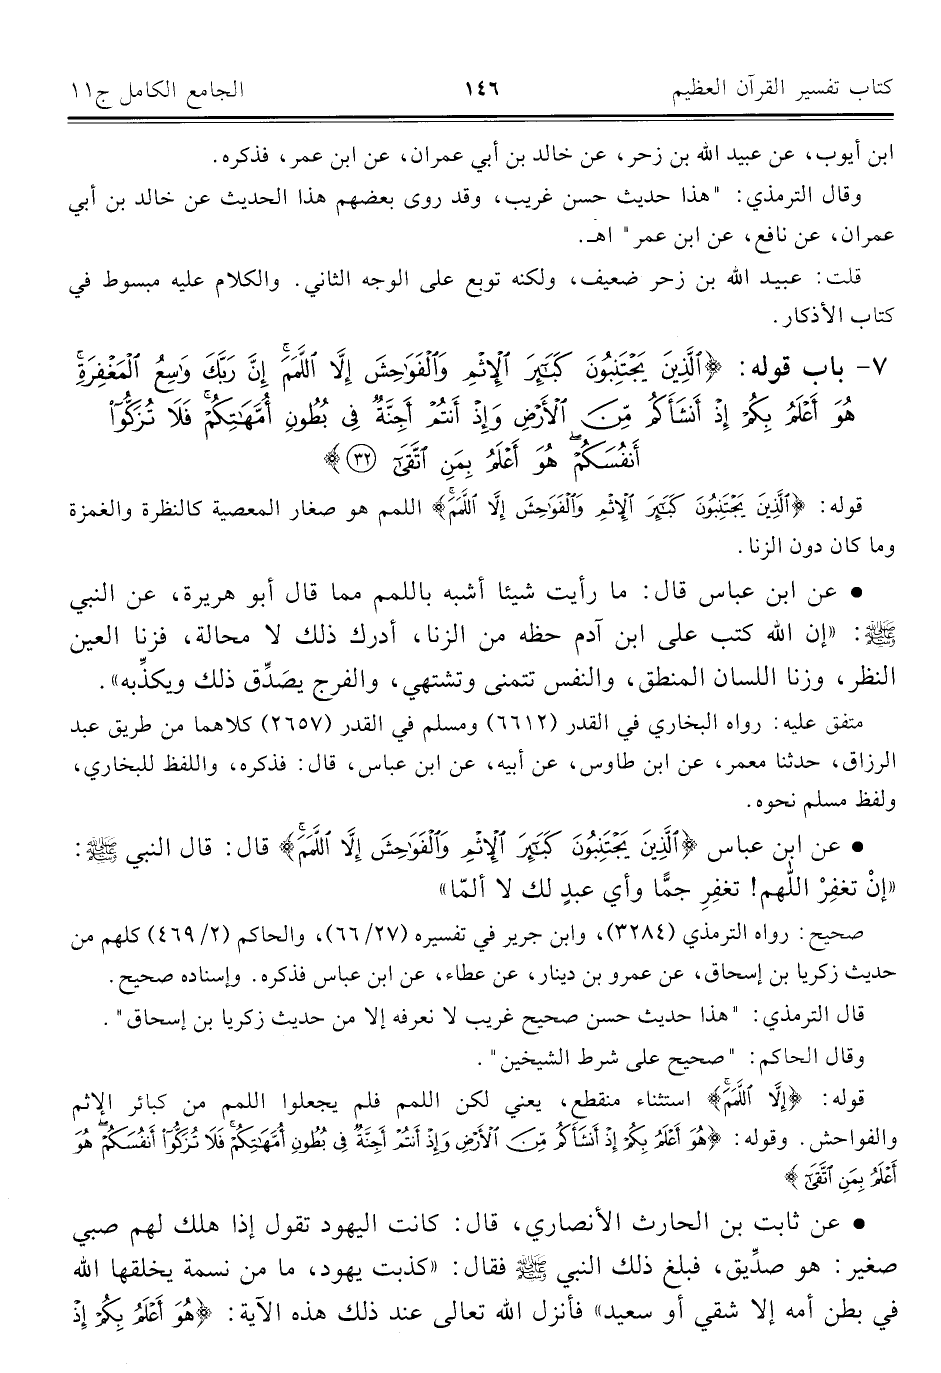 كتاب تفسير القرآن العظيم ١٤٦ الجامع الكامل ج١١
ابن أيوب، عن عبيد الله بن زحر، عن خالد بن أبي عمران، عن ابن عمر، فذكره.
وقال الترمذي: "هذا حديث حسن غريب، وقد روى بعضهم هذا الحديث عن خالد بن أبي
عمران، عن نافع، عن ابن عمر" اهـ.
قلت: عبيد الله بن زحر ضعيف، ولكنه توبع على الوجه الثاني. والكلام عليه مبسوط في
كتاب الأذكار.
٧- باب قوله: ﴿ٱلَّذِينَ يَجْتَنِبُونَ كَبَٰٓئِرَ ٱلْإِثْمِ وَٱلْفَوَٰحِشَ إِلَّا ٱللَّمَمَ ۚ إِنَّ رَبَّكَ وَٰسِعُ ٱلْمَغْفِرَةِ ۚ
هُوَ أَعْلَمُ بِكُمْ إِذْ أَنشَأَكُم مِّنَ ٱلْأَرْضِ وَإِذْ أَنتُمْ أَجِنَّةٌ فِى بُطُونِ أُمَّهَٰتِكُمْ ۖ فَلَا تُزَكُّوٓا۟
أَنفُسَكُمْ ۖ هُوَ أَعْلَمُ بِمَنِ ٱتَّقَىٰٓ ٣٢﴾
قوله: ﴿ٱلَّذِينَ يَجْتَنِبُونَ كَبَٰٓئِرَ ٱلْإِثْمِ وَٱلْفَوَٰحِشَ إِلَّا ٱللَّمَمَ ۚ﴾ اللمم هو صغار المعصية كالنظرة والغمزة
وما كان دون الزنا.
• عن ابن عباس قال: ما رأيت شيئا أشبه باللمم مما قال أبو هريرة، عن النبي
ﷺ: «إن الله كتب على ابن آدم حظه من الزنا، أدرك ذلك لا محالة، فزنا العين
النظر، وزنا اللسان المنطق، والنفس تتمنى وتشتهي، والفرج يصَدِّق ذلك ويكذِّبه».
متفق عليه: رواه البخاري في القدر (٦٦١٢) ومسلم في القدر (٢٦٥٧) كلاهما من طريق عبد
الرزاق، حدثنا معمر، عن ابن طاوس، عن أبيه، عن ابن عباس، قال: فذكره، واللفظ للبخاري،
ولفظ مسلم نحوه.
• عن ابن عباس ﴿ٱلَّذِينَ يَجْتَنِبُونَ كَبَٰٓئِرَ ٱلْإِثْمِ وَٱلْفَوَٰحِشَ إِلَّا ٱللَّمَمَ ۚ﴾ قال: قال النبي ﷺ:
«إنْ تغفِرْ اللّهم! تغفِرِ جمًّا وأي عبدٍ لك لا ألمّا»
صحيح: رواه الترمذي (٣٢٨٤)، وابن جرير في تفسيره (٦٦/٢٧)، والحاكم (٤٦٩/٢) كلهم من
حديث زكريا بن إسحاق، عن عمرو بن دينار، عن عطاء، عن ابن عباس فذكره. وإسناده صحيح.
قال الترمذي: "هذا حديث حسن صحيح غريب لا نعرفه إلا من حديث زكريا بن إسحاق".
وقال الحاكم: "صحيح على شرط الشيخين".
قوله: ﴿إِلَّا ٱللَّمَمَ ۚ﴾ استثناء منقطع، يعني لكن اللمم فلم يجعلوا اللمم من كبائر الإثم
والفواحش. وقوله: ﴿هُوَ أَعْلَمُ بِكُمْ إِذْ أَنشَأَكُم مِّنَ ٱلْأَرْضِ وَإِذْ أَنتُمْ أَجِنَّةٌ فِى بُطُونِ أُمَّهَٰتِكُمْ ۖ فَلَا تُزَكُّوٓا۟ أَنفُسَكُمْ ۖ هُوَ
أَعْلَمُ بِمَنِ ٱتَّقَىٰٓ﴾
• عن ثابت بن الحارث الأنصاري، قال: كانت اليهود تقول إذا هلك لهم صبي
صغير: هو صدِّيق، فبلغ ذلك النبي ﷺ فقال: «كذبت يهود، ما من نسمة يخلقها الله
في بطن أمه إلا شقي أو سعيد» فأنزل الله تعالى عند ذلك هذه الآية: ﴿هُوَ أَعْلَمُ بِكُمْ إِذْ